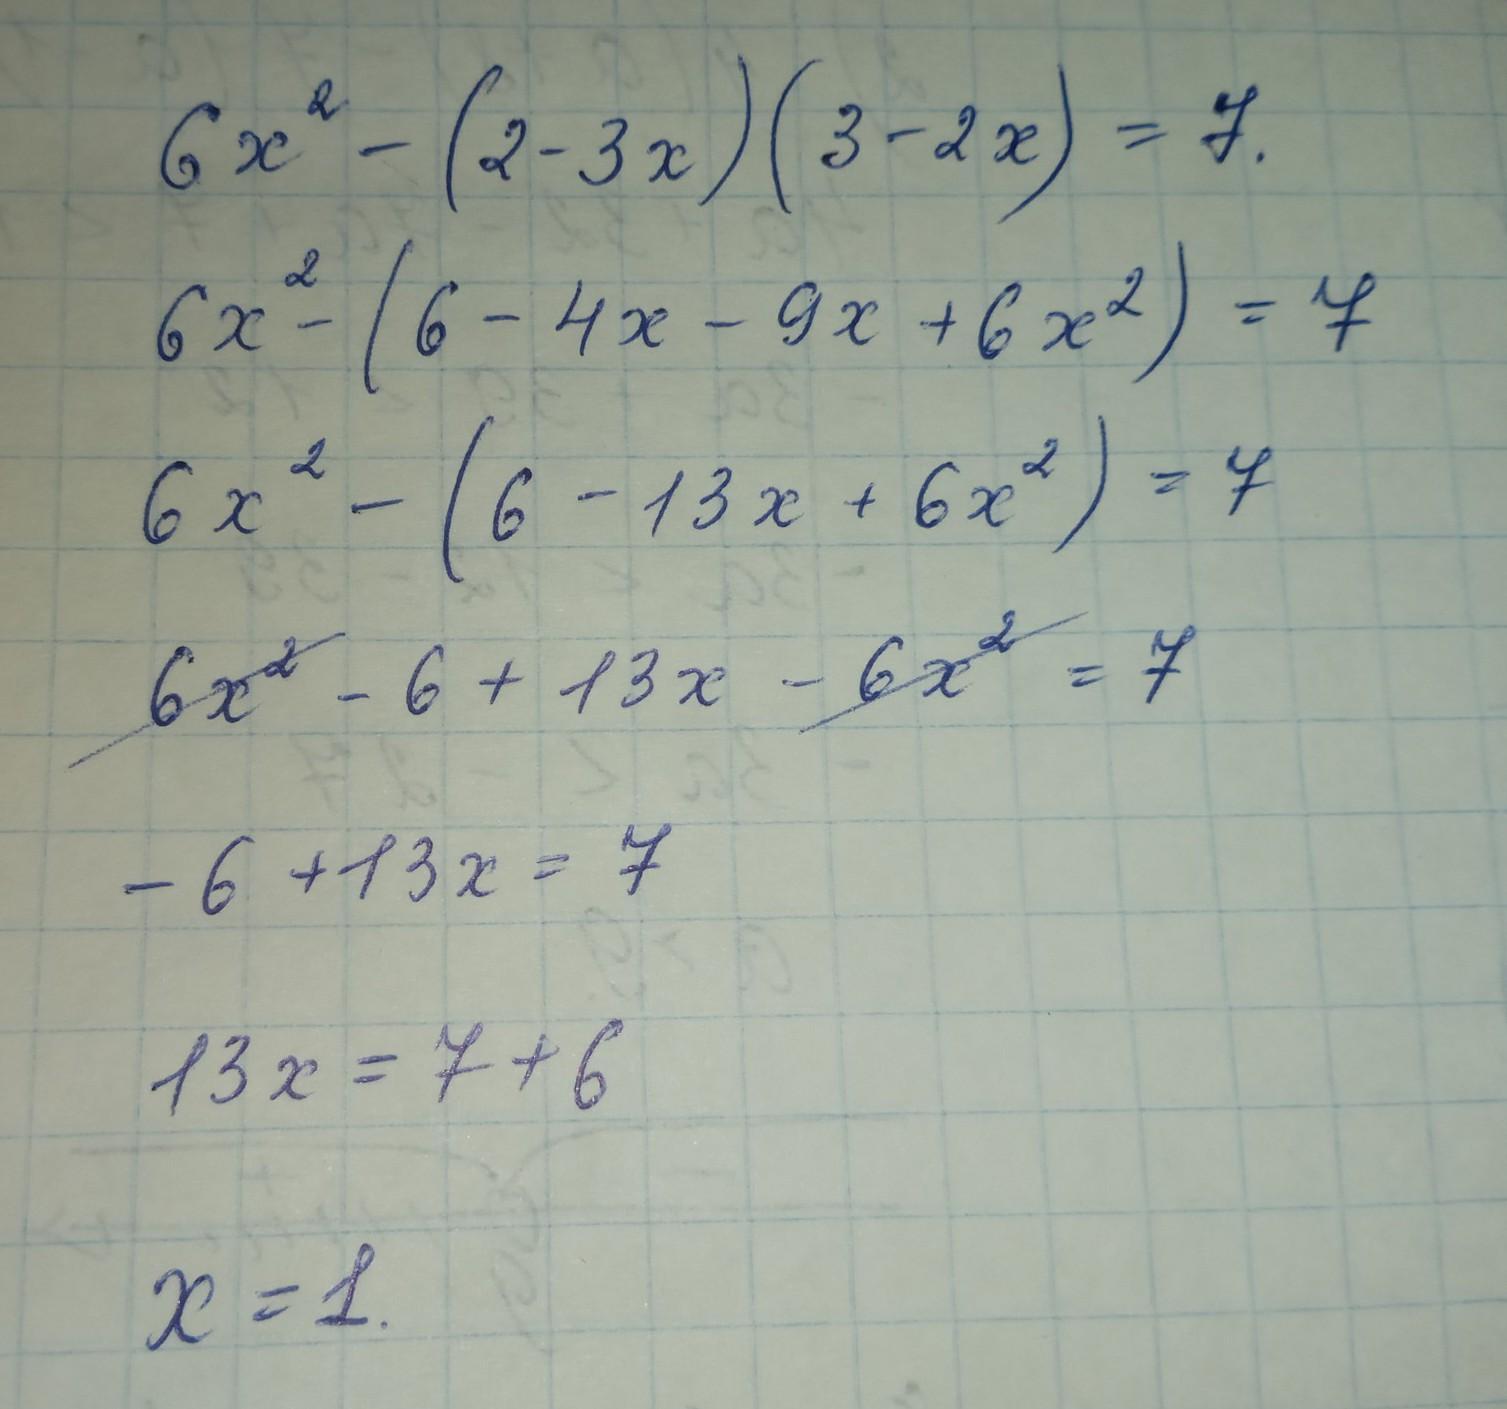 6x² - (2-3x)(3-2x) = 7.
6x² - (6 - 4x - 9x + 6x²) = 7
6x² - (6 - 13x + 6x²) = 7
6x² - 6 + 13x - 6x² = 7
- 6 + 13x = 7
13x = 7 + 6
x = 1.